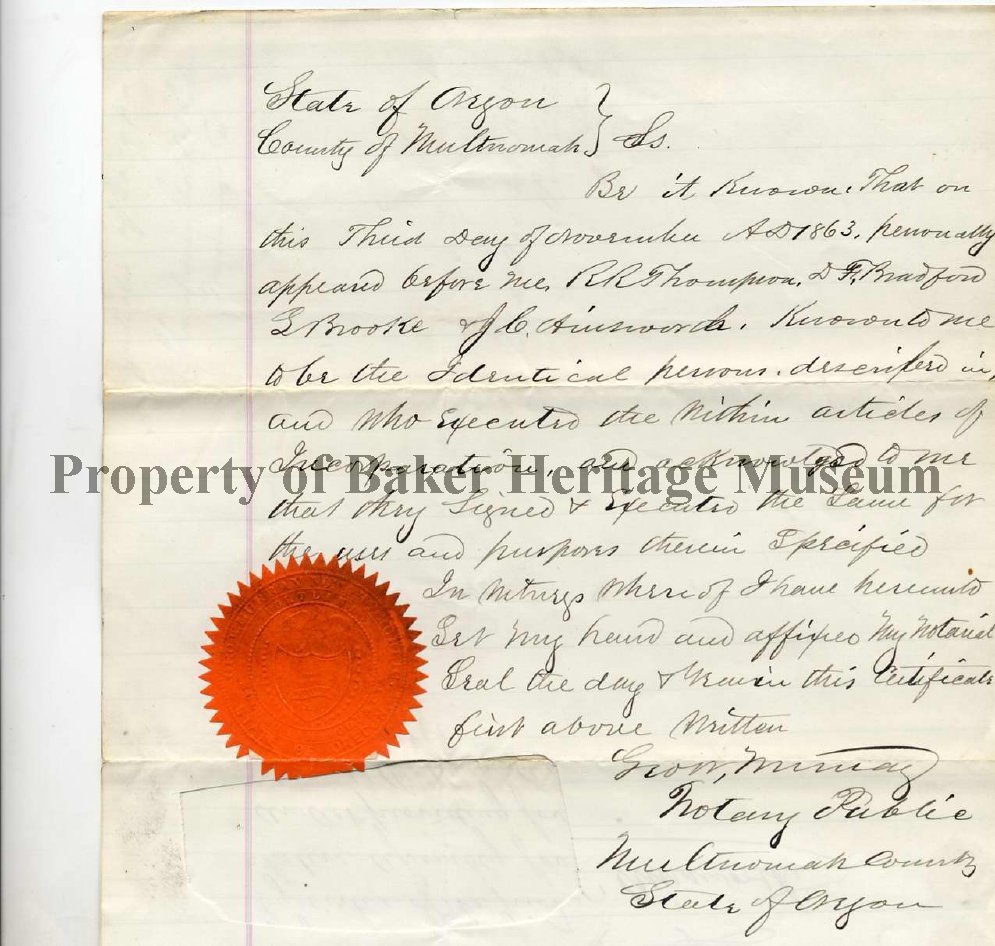 State of Oregon }
County of Multnomah } Ss.
Be it Known, That on
this Third Day of November AD 1863, personally
appeard before me, R R Thompson, D F, Bradford
L Brooke & J C, Ainsworth. Known to me
to be the Identical persons. described in,
and who Executed the Within articles of
Incorporation, and acknowledged to me
Property of Baker Heritage Museum
that they Signed & Executed the Same for
the uses and purposes therein Specified
In Witness Where of I have hereunto
Set my hand and affixed My Notarial
Seal the day & Year in this Certificate
first above Written
Geo W, Murray
Notary Public
Multnomah County
State of Oregon